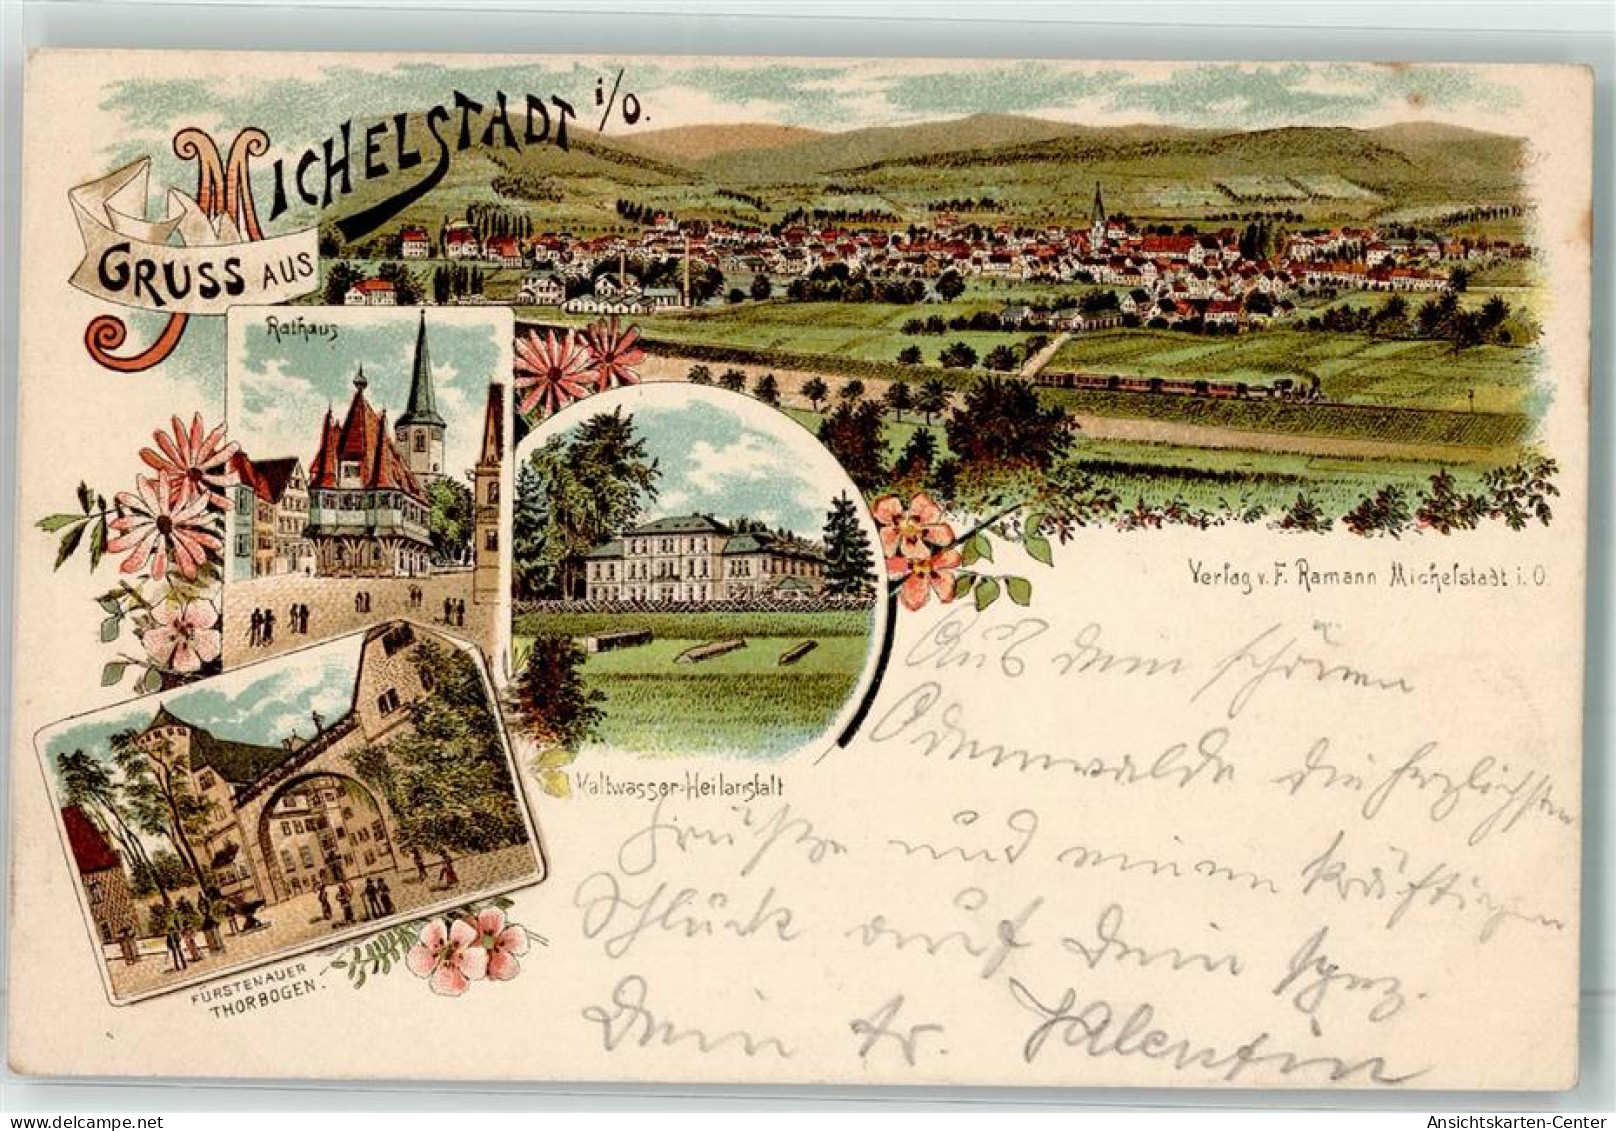 GRUSS AUS
MICHELSTADT i/O.
Rathaus
Kaltwasser-Heilanstalt
FÜRSTENAUER
THORBOGEN.
Verlag v. F. Ramann Michelstadt i. O
Aus dem schönen
Odenwalde die herzlichsten
Grüße und einen kräftigen
Schluck auf Dein
Dein tr. Valentin
Ansichtskarten-Center